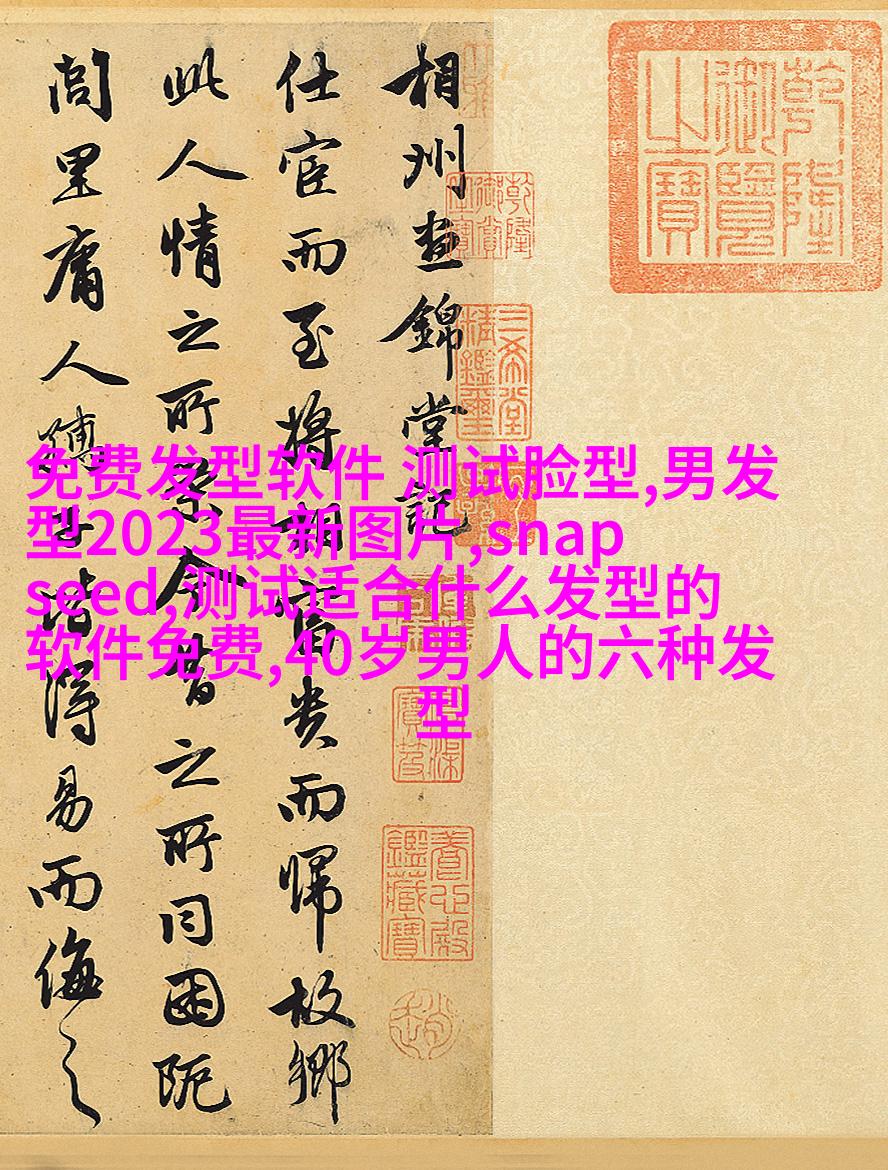 乾隆御覽之寶
相州晝錦堂記
仕宦而至將相富貴而歸故鄉
此人情之所榮今昔之所同困阨
閭里庸人孺子皆得易而侮之
三希堂精鑑璽
養心殿鑑藏寶
免费发型软件 测试脸型,男发
型2023最新图片,snap
seed,测试适合什么发型的
软件免费,40岁男人的六种发
型